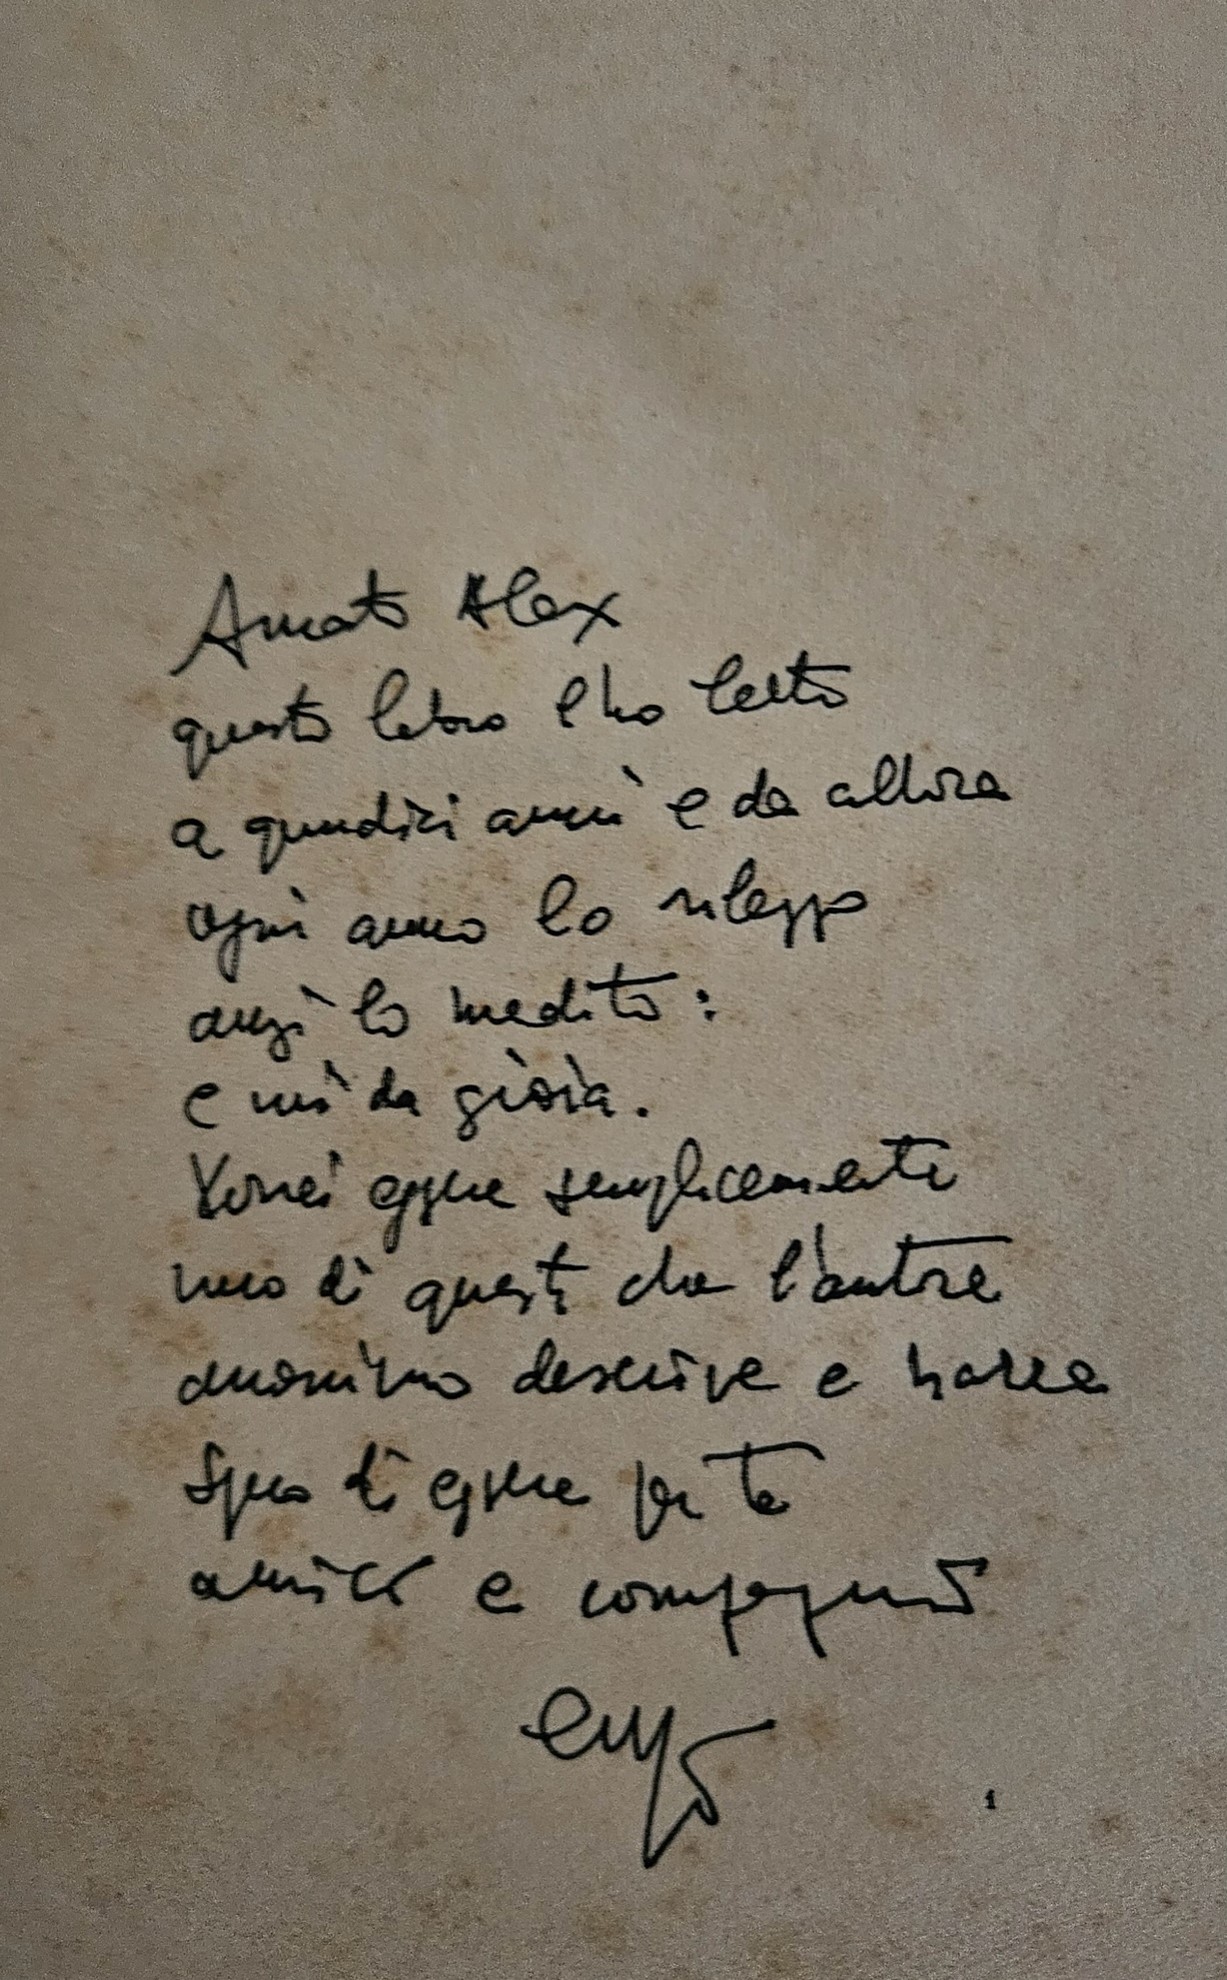 Amato Alex
questo libro l'ho letto
a quindici anni e da allora
ogni anno lo rileggo
anzi lo medito:
e mi da gioia.
Vorrei essere semplicemente
uno di questi che l'autore
anonimo descrive e narra
Spero di essere per te
amico e compagno
1